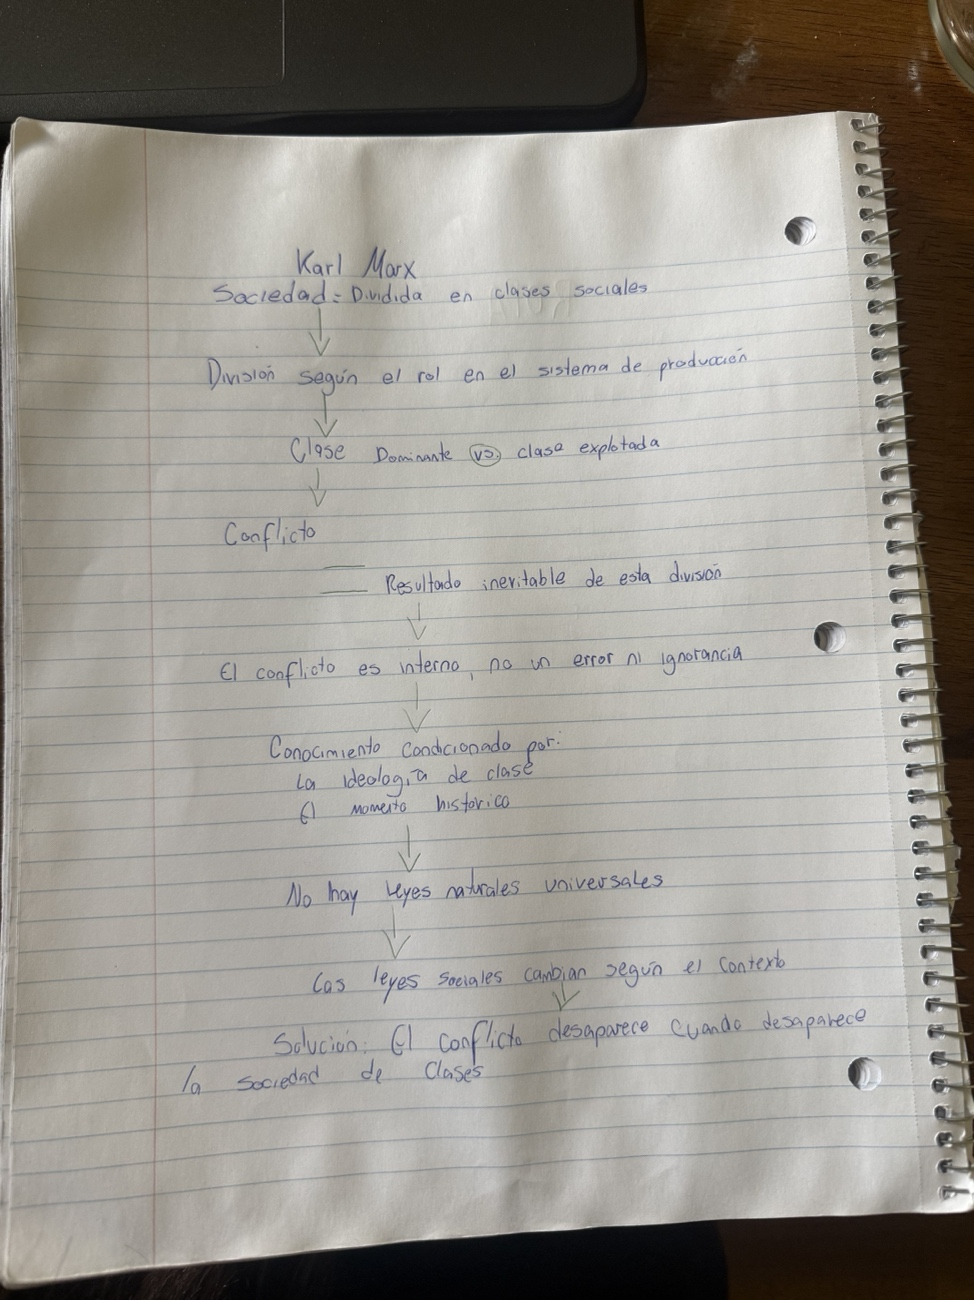 Karl Marx
Sociedad = Dividida en clases sociales
División según el rol en el sistema de producción
Clase Dominante vs. clase explotada
Conflicto
Resultado inevitable de esta división
El conflicto es interno, no un error ni ignorancia
Conocimiento condicionado por:
La ideología de clase
El momento histórico
No hay leyes naturales universales
Las leyes sociales cambian según el contexto
Solución: El conflicto desaparece cuando desaparece
la sociedad de clases